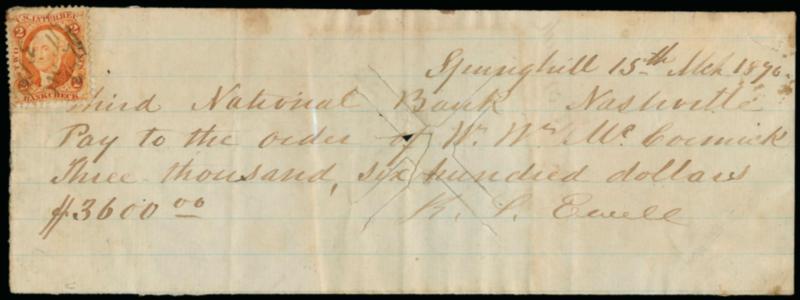 U.S. INTER. REV.
2 2
TWO
BANK CHECK
Springhill 15th Mch 1870
Third National Bank Nashville
Pay to the order of Wm. McCormick
Three thousand, six hundred dollars
$3600 00
R. S. Ewell